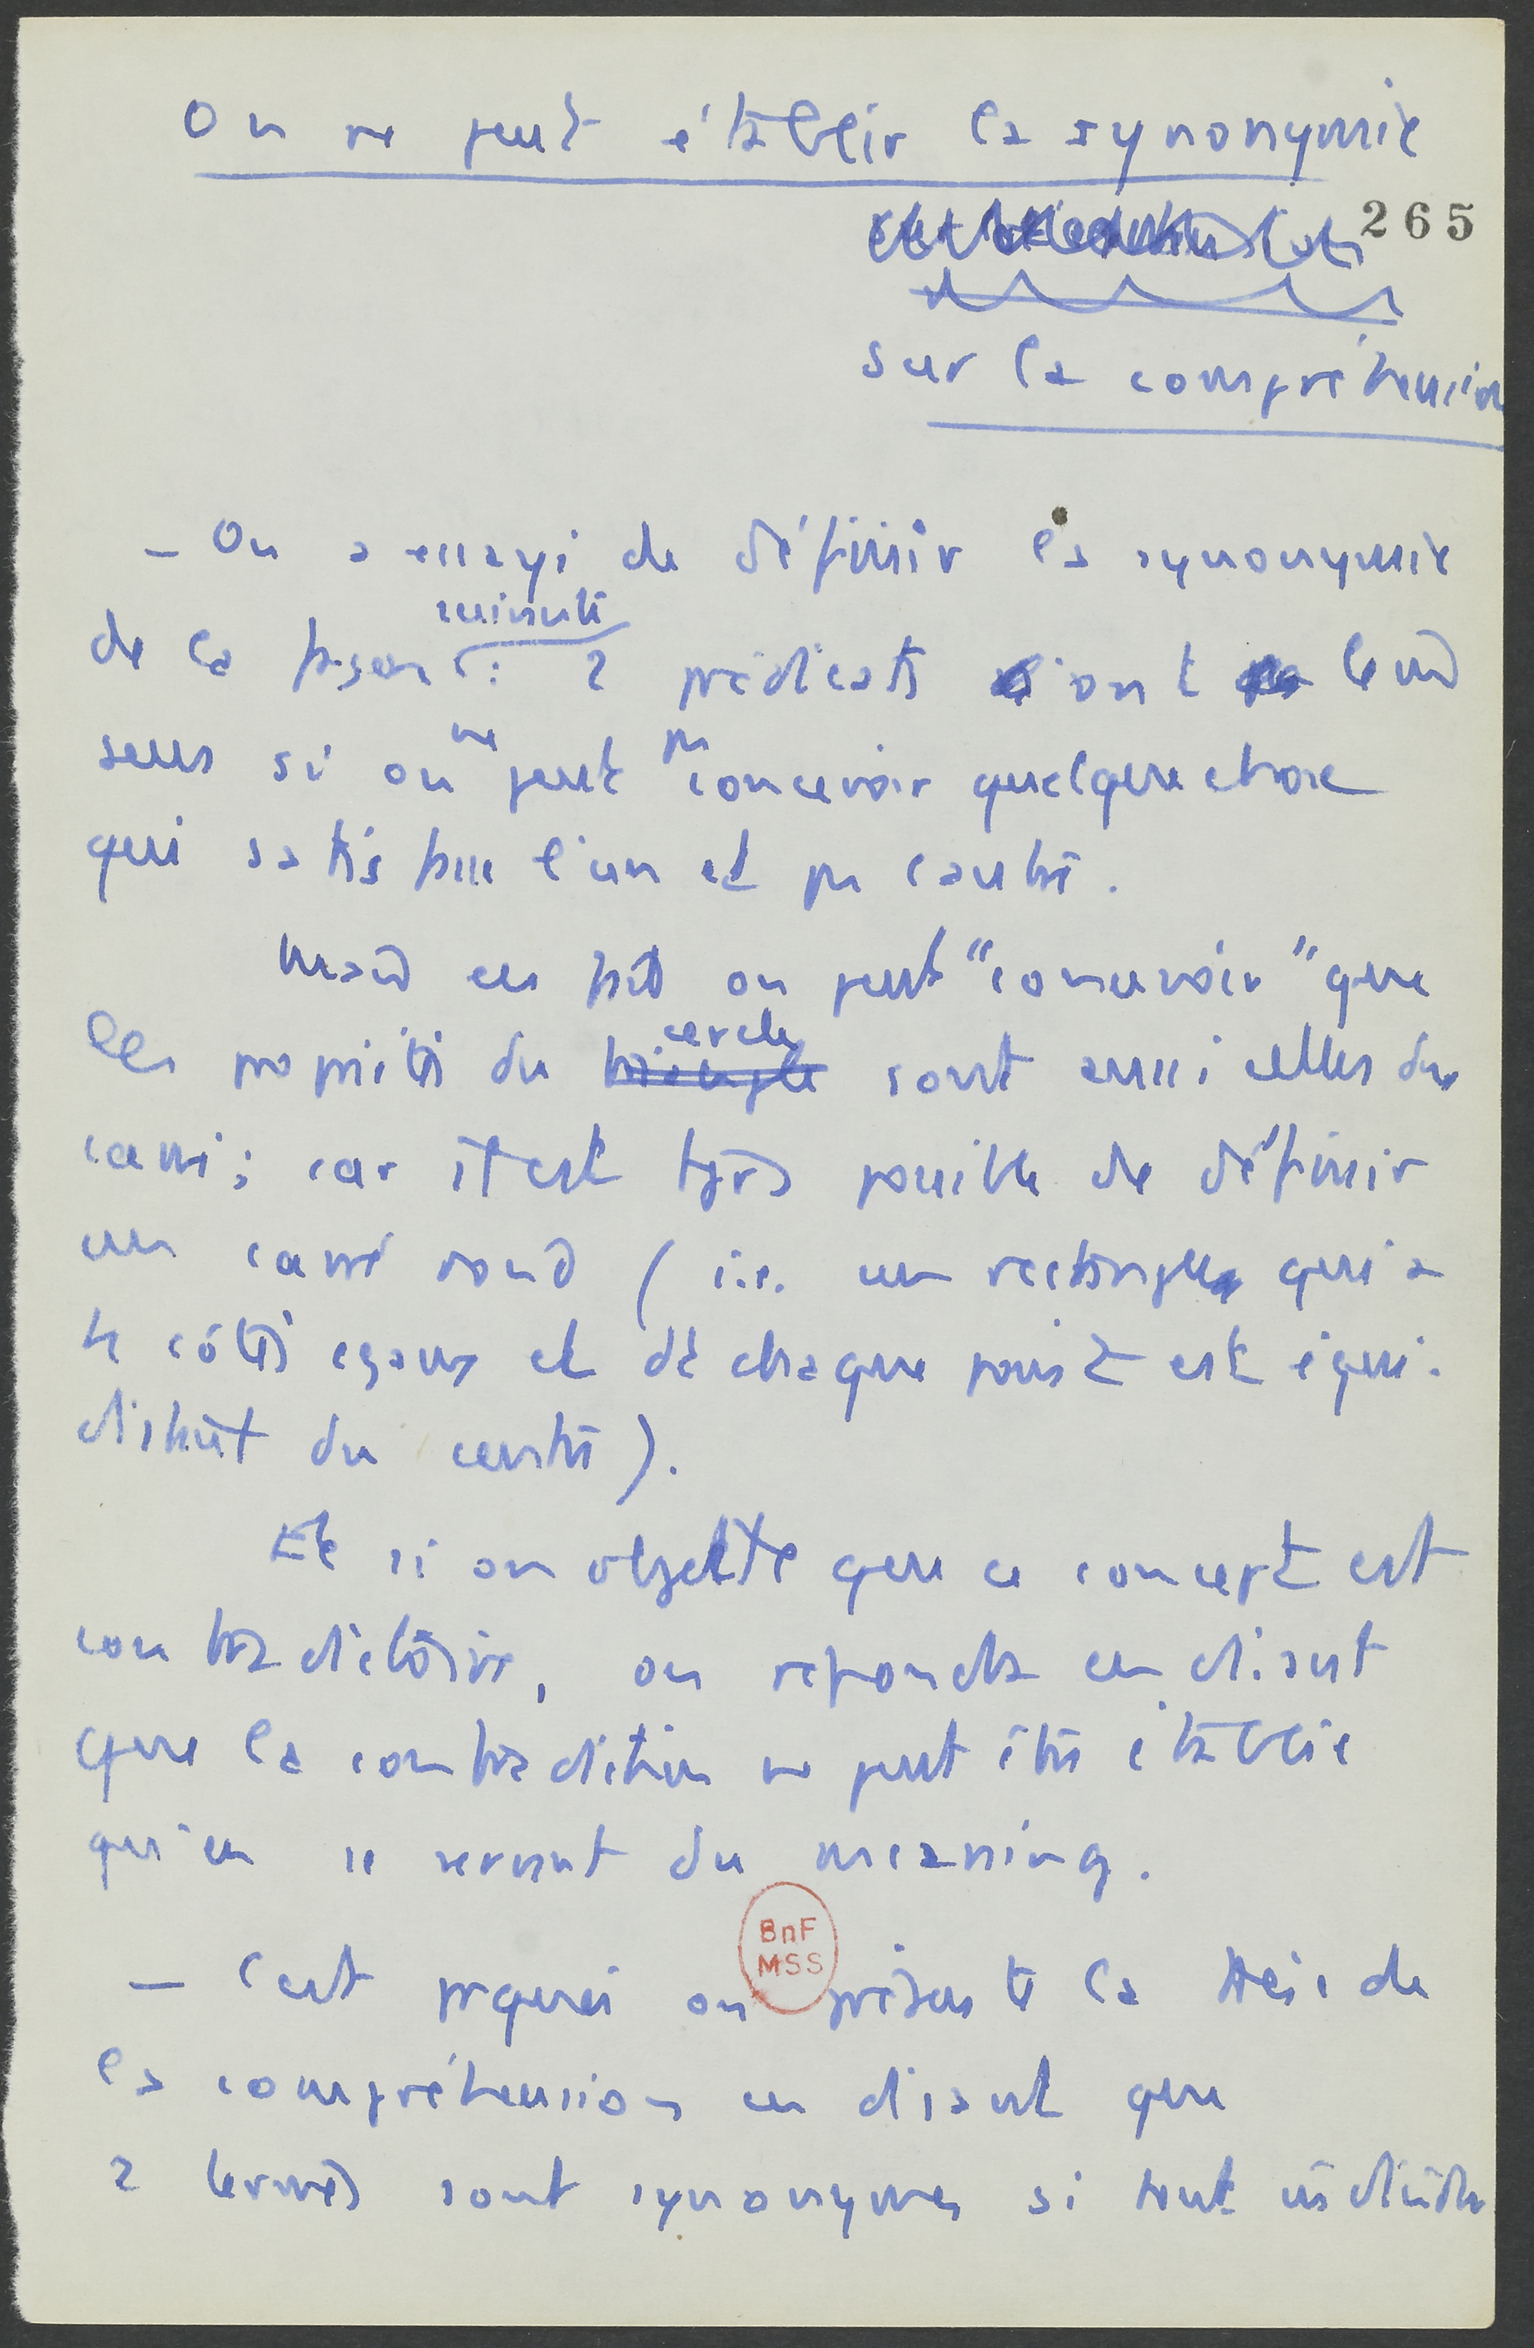 On ne peut établir la synonymie
265
sur la compréhension
- On a essayé de définir la synonymie
suivante
de la façon : 2 prédicats ont le m̂
sens si on ne peut pas concevoir quelque chose
qui satisfasse l'un et pas l'autre.
Mais en fait on peut "concevoir" que
cercle
les propriétés du triangle sont aussi celles du
carré ; car il est tjrs possible de définir
un carré rond (i.e. un rectangle qui a
4 côtés égaux et dt chaque point est équi-
distant du centre).
Et si on objecte que ce concept est
contradictoire, on répondra en disant
que la contradiction ne peut être établie
qu'en se servant du meaning.
BnF
MSS
- C'est pquoi on présente la thèse de
la compréhension en disant que
2 termes sont synonymes si tout individu